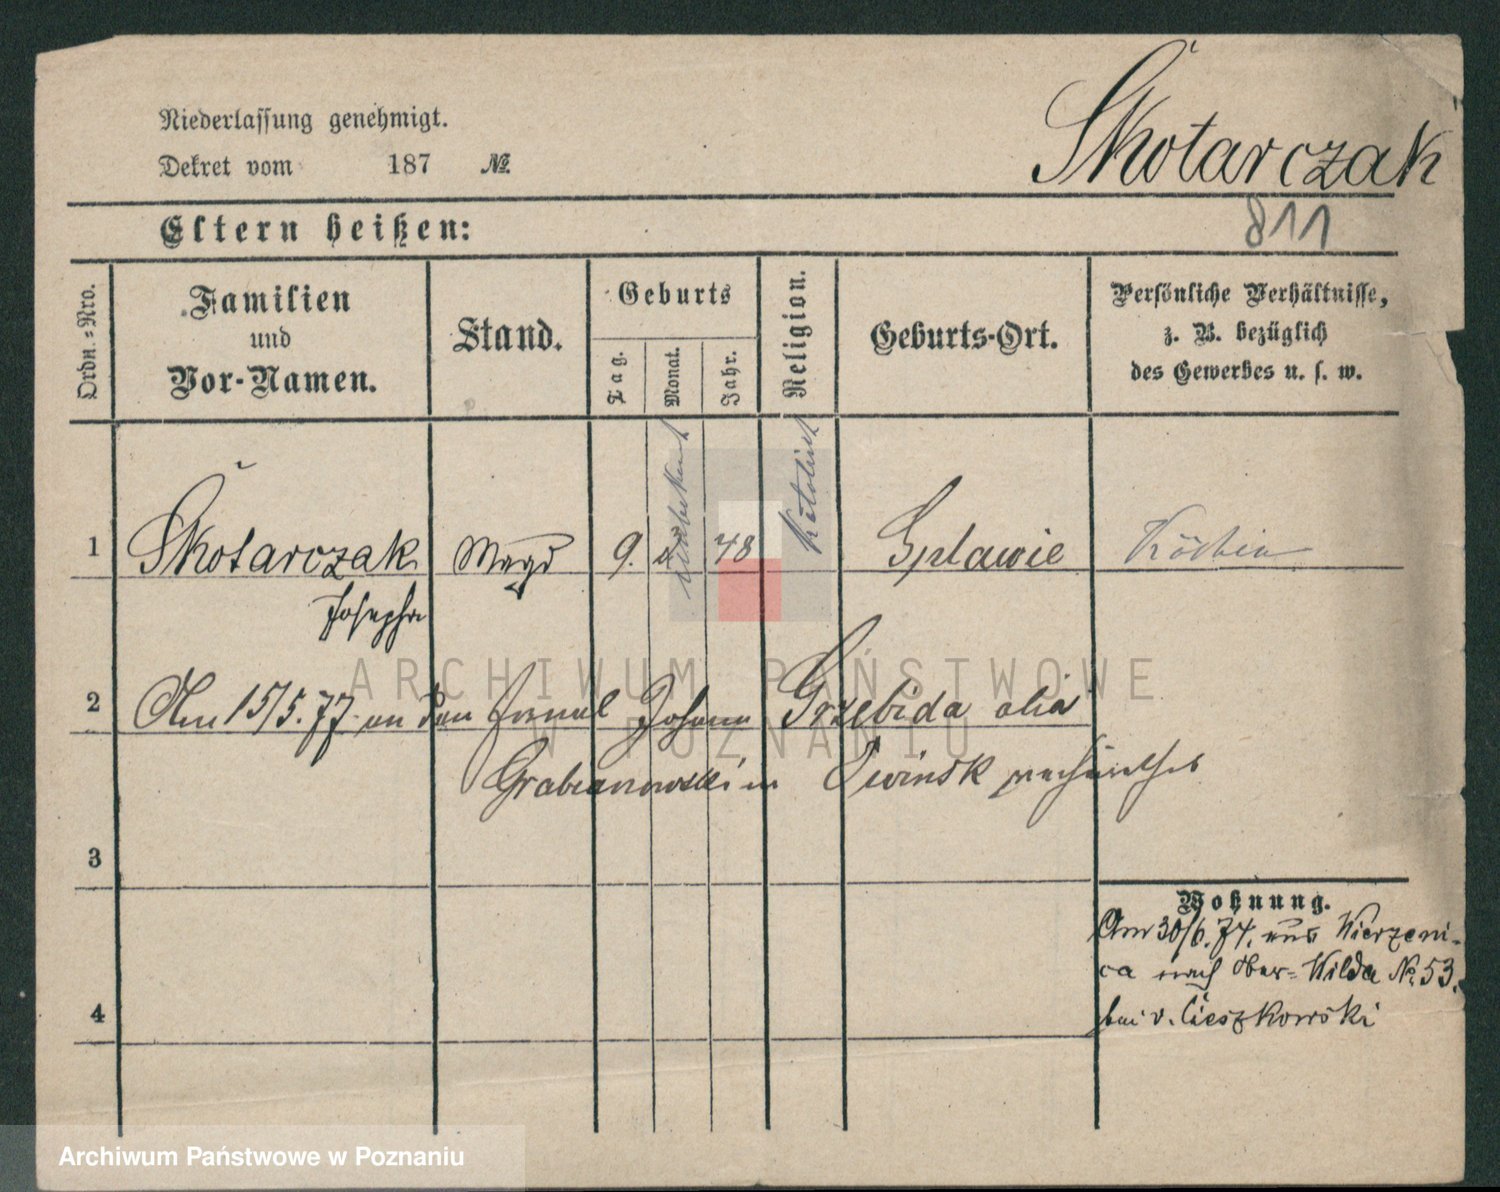 Skotarczak
Niederlassung genehmigt.
Dekret vom 187 №
Eltern heißen:
811
Ordn.=Nro.
Familien
und
Vor-Namen.
Stand.
Geburts
Tag.
Monat.
Jahr.
Religion.
Geburts-Ort.
Persönliche Verhältnisse,
z. B. bezüglich
des Gewerbes u. s. w.
1 Skotarczak Magd 9. 48 Katolisch Splawie Köchin
unbekannt
Josepha
2 Am 15/5. 77. an den Johann Grzebida alias
Grabianowski in Owinsk
3
Wohnung.
Am 30/6. 74. aus Wierzeni-
ca nach Ober-Wilda № 53.
bei v. Cieszkowski
4
ARCHIWUM PAŃSTWOWE
W POZNANIU
Archiwum Państwowe w Poznaniu